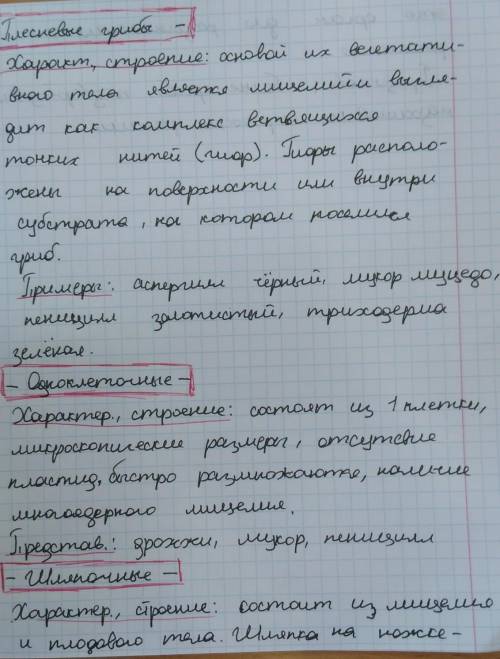 Плесневые грибы -
Характ., строение: основой их вегетати-
вного тела является мицелий и выгля-
дит как комплекс ветвящихся
тонких нитей (гиф). Гифы располо-
жены на поверхности или внутри
субстрата, на котором поселился
гриб.
Примеры: аспергилл чёрный, мукор муцедо,
пеницилл золотистый, триходерма
зелёная.
- Одноклеточные -
Характер., строение: состоят из 1 клетки,
микроскопические размеры, отсутсвие
пластид, быстро размножаются, наличие
многоядерного мицелия.
Представ.: дрожжи, мукор, пеницилл
- Шляпочные -
Характер., строение: состоит из мицелия
и плодового тела. Шляпка на ножке-